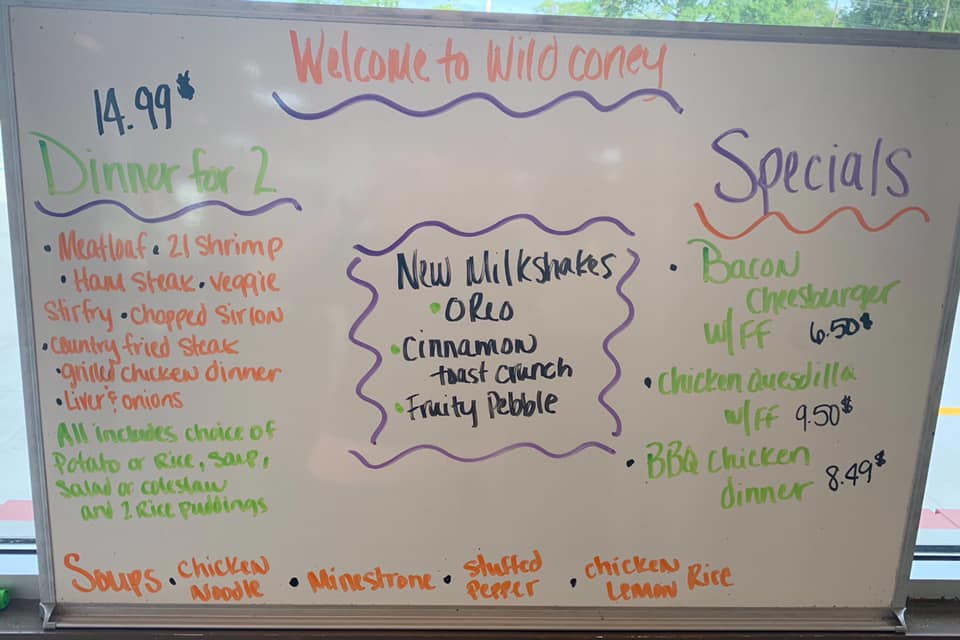 Welcome to Wild coney
14.99$
Dinner for 2
• Meatloaf • 21 shrimp
• Ham steak • veggie
stirfry • chopped sirlon
• country fried steak
• grilled chicken dinner
• Liver & onions
All includes choice of
Potato or Rice, soup,
salad or coleslaw
and 2 Rice puddings
New Milkshakes
• OReo
• Cinnamon
toast crunch
• Fruity Pebble
Specials
• Bacon
Cheesburger
w/FF 6.50$
• Chicken Quesdilla
w/FF 9.50$
• BBQ chicken
dinner 8.49$
Soups • Chicken Noodle • Minestrone • stuffed Pepper • chicken Lemon Rice